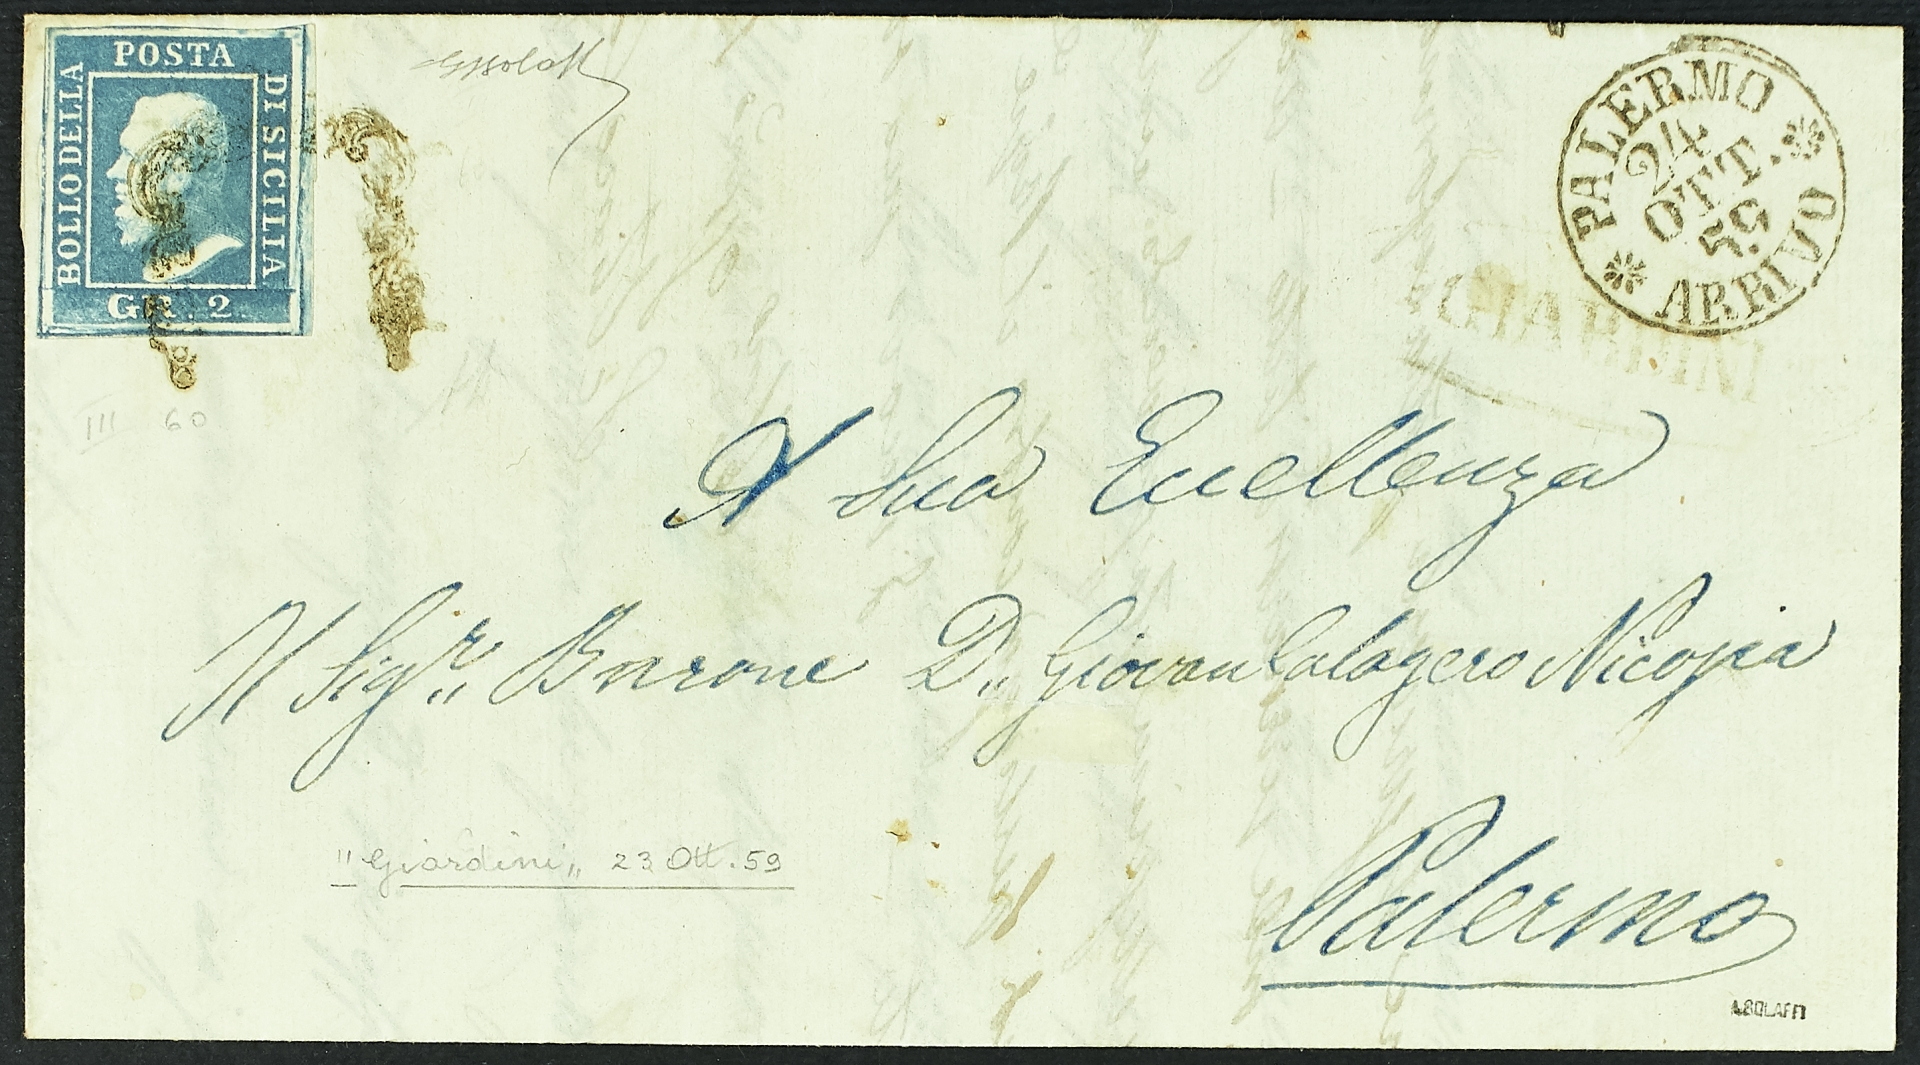 POSTA
BOLLO DELLA
DI SICILIA
GR. 2.
PALERMO
24
OTT.
59
ARRIVO
GIARDINI
III 60
A Sua Eccellenza
Il Sigr. Barone D. Giovan Calogero Nicosia
"Giardini" 23 Ott. 59
Palermo
A.BOLAFFI